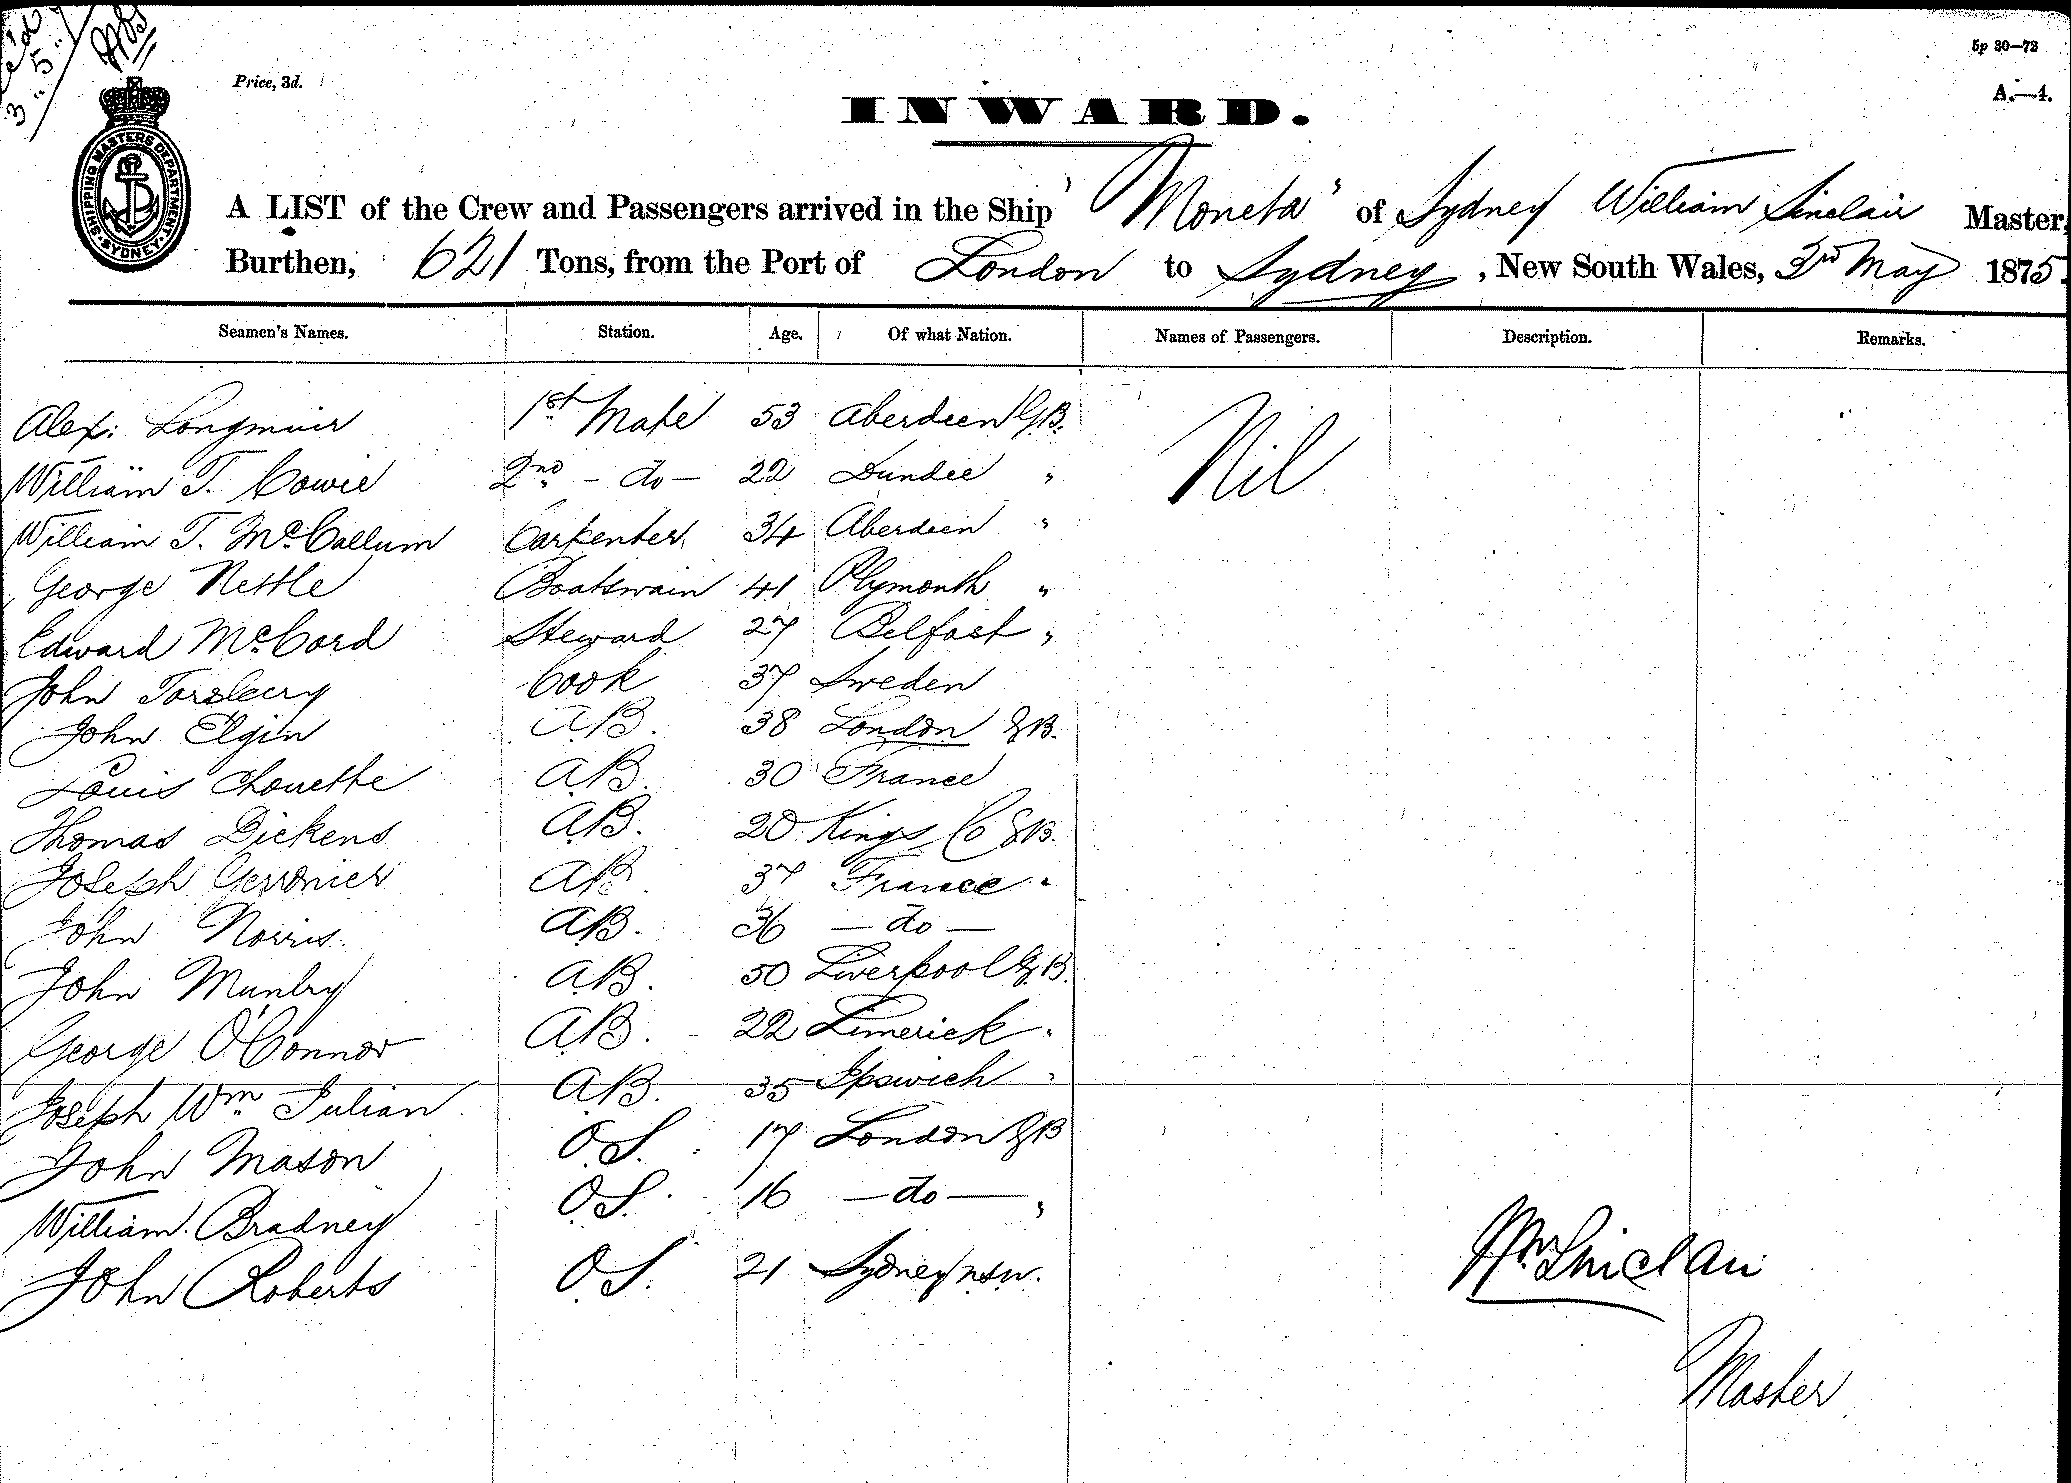 3 " 5 "
5p 30—73
Price, 3d.
A.—4.
INWARD.
SHIPPING MASTERS DEPARTMENT. SYDNEY.
A LIST of the Crew and Passengers arrived in the Ship "Moneta" of Sydney William Sinclair Master,
Burthen, 621 Tons, from the Port of London to Sydney, New South Wales, 3rd May 1875.
Seamen's Names. Station. Age. Of what Nation. Names of Passengers. Description. Remarks.
Alex: Longmuir 1st Mate 53 Aberdeen G.B. Nil
William T. Cowie 2nd - do - 22 Dundee "
William T. McCallum Carpenter 34 Aberdeen "
George Nettle Boatswain 41 Plymouth "
Edward McCord Steward 27 Belfast "
John Cook 37 Sweden
John Elgin A.B. 38 London G.B.
Louis Chouette A.B. 30 France
Thomas Dickens A.B. 20 Kings Co G.B.
Joseph A.B. 37 France "
John Norris A.B. 36 - do -
John Munby A.B. 50 Liverpool G.B.
George O'Connor A.B. 22 Limerick "
Joseph Wm Julian A.B. 35 Ipswich "
John Mason O.S. 17 London G.B
William Bradney O.S. 16 - do - "
John Roberts O.S. 21 Sydney N.S.W.
Wm Sinclair
Master